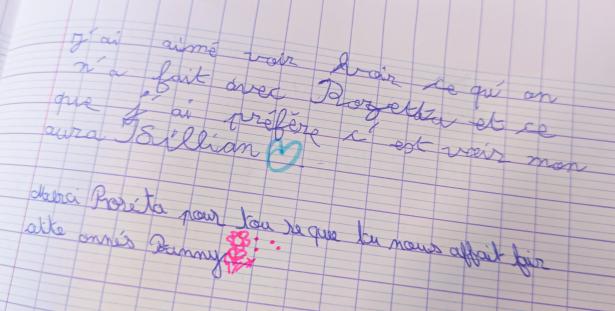 j'ai aimé voir Avoir ce qu'on
n'a fait avec Rozetta et ce
que j'ai préfère c'est voir mon
aura Tsillian
Mara Proréta pour tou se que tu nous affait fair
sette onnés Danny